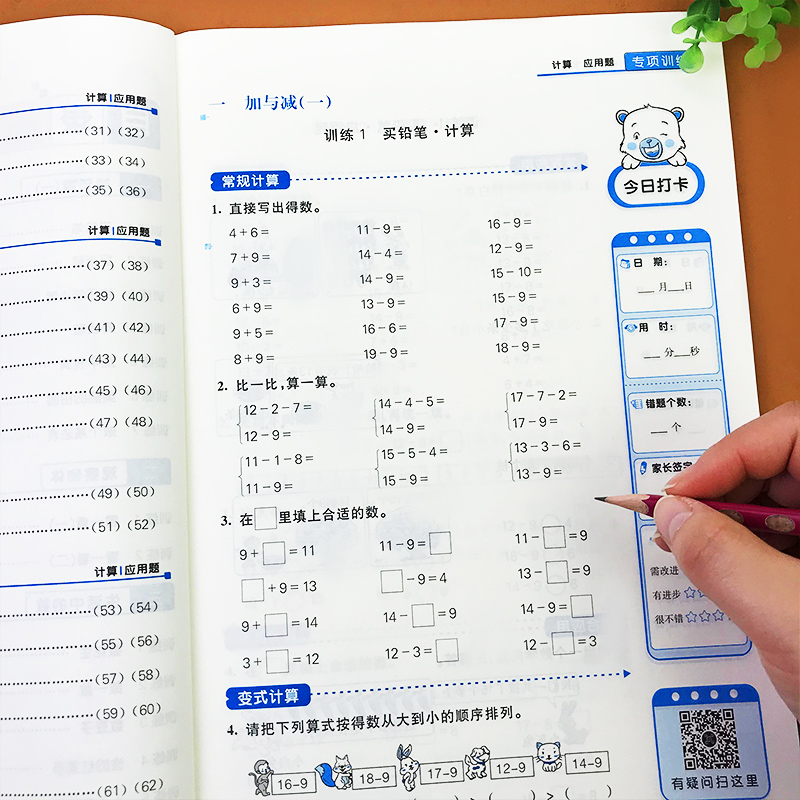 计算 应用题
………………(31)(32)
………………(33)(34)
………………(35)(36)
计算 应用题
………………(37)(38)
………………(39)(40)
………………(41)(42)
………………(43)(44)
………………(45)(46)
………………(47)(48)
………………(49)(50)
………………(51)(52)
计算 应用题
………………(53)(54)
………………(55)(56)
………………(57)(58)
………………(59)(60)
………………(61)(62)
计算 应用题 专项训练
一 加与减(一)
训练1 买铅笔·计算
常规计算
1. 直接写出得数。
4+6= 11-9= 16-9=
7+9= 14-4= 12-9=
9+3= 14-9= 15-10=
6+9= 13-9= 15-9=
9+5= 16-6= 17-9=
8+9= 19-9= 18-9=
2. 比一比,算一算。
12-2-7= 14-4-5= 17-7-2=
12-9= 14-9= 17-9=
11-1-8= 15-5-4= 13-3-6=
11-9= 15-9= 13-9=
3. 在□里填上合适的数。
9+□=11 11-9=□ 11-□=9
□+9=13 □-9=4 13-□=9
9+□=14 14-□=9 14-9=□
3+□=12 12-3=□ 12-□=3
变式计算
4. 请把下列算式按得数从大到小的顺序排列。
16-9 18-9 17-9 12-9 14-9
)>( )>( )
今日打卡
日 期:
___月___日
用 时:
___分___秒
错题个数:
___个
家长签字
需改进
有进步☆☆
很不错☆☆☆
有疑问扫这里